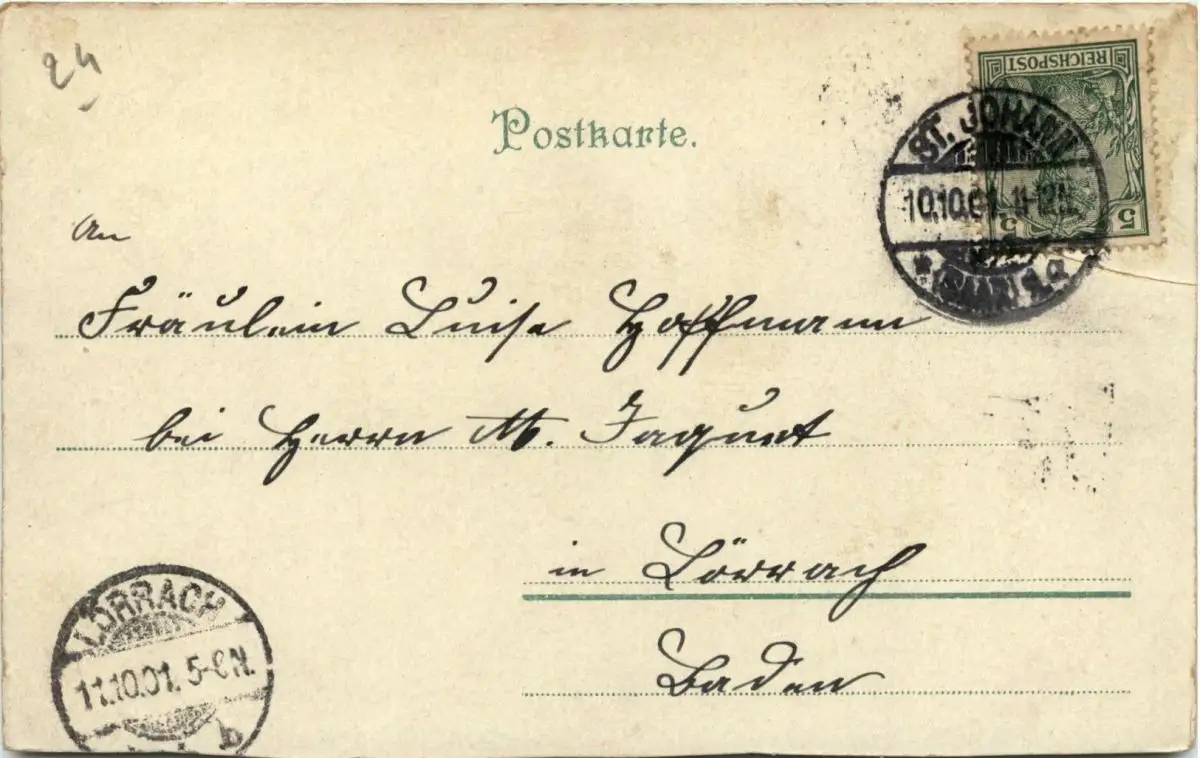 24
Postkarte.
REICHSPOST
5 5
ST. JOHANN
10.10.01. 11-12N.
* (SAAR) 1.a
An
Fräulein Luise Hoffmann
bei Herrn M. Jaquet
in Lörrach
Baden
LÖRRACH
11.10.01. 5-6N.
b